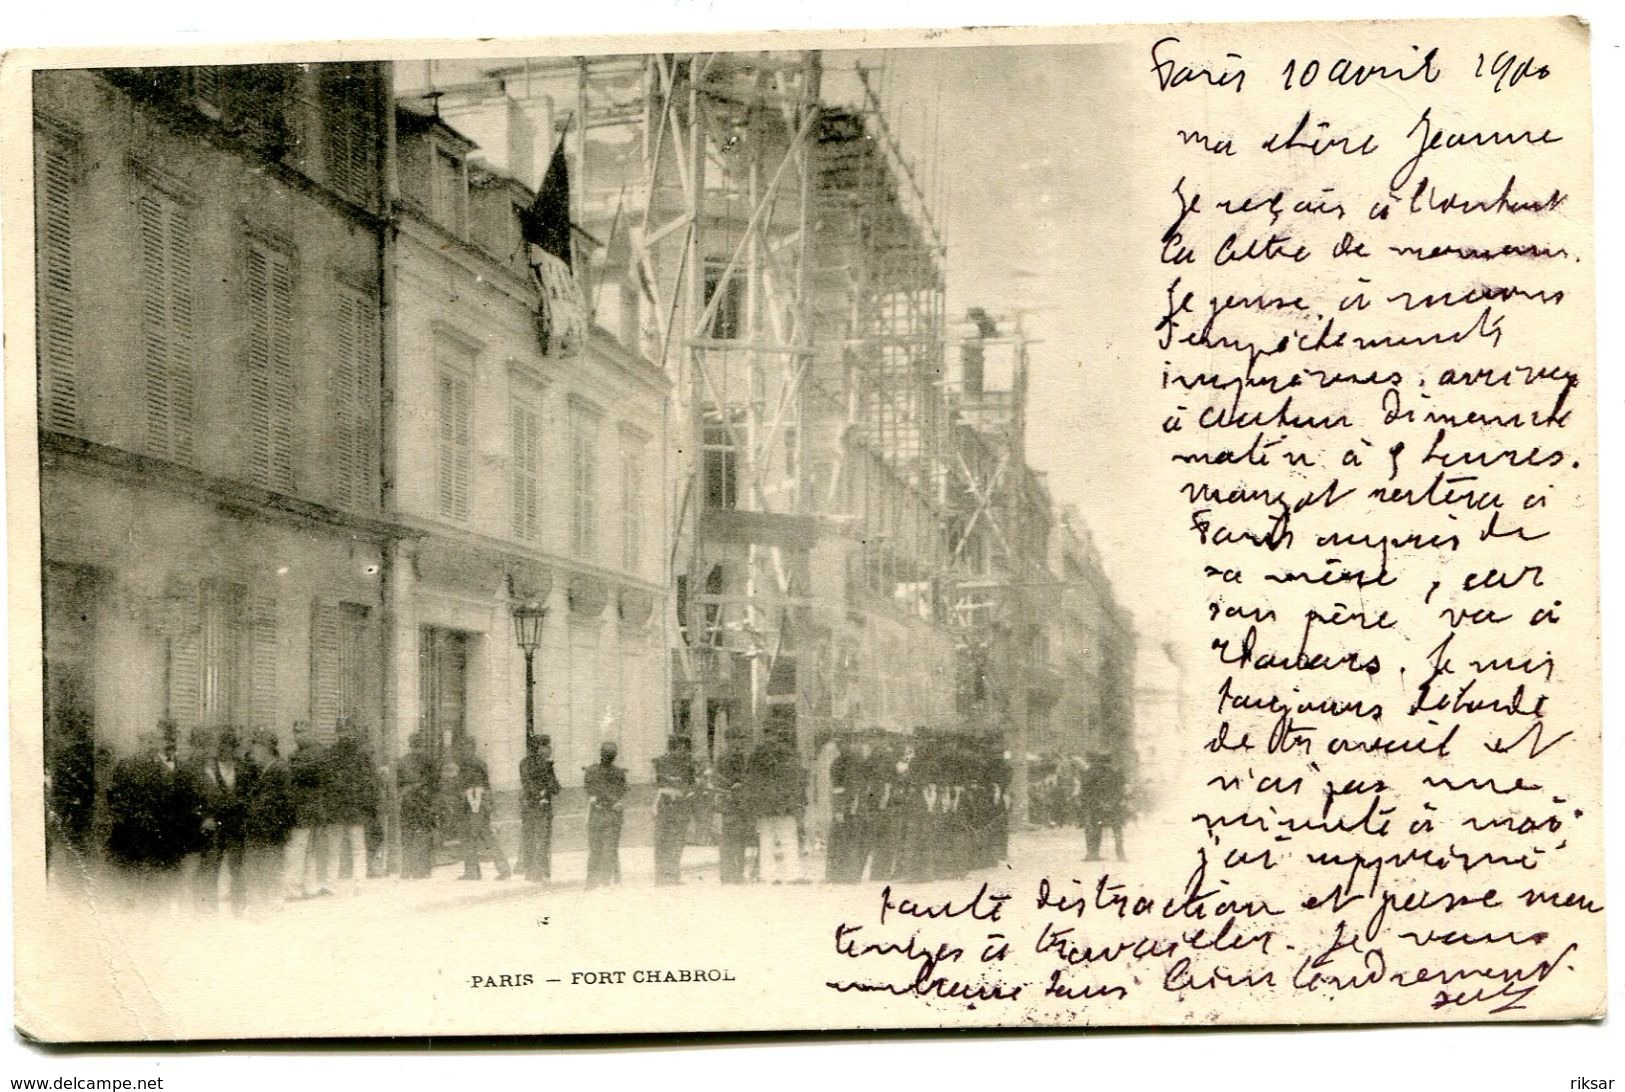 Paris 10 avril 1900
ma chère Jeanne
Je reçois à l'instant
la lettre de maman.
Je pense, à moins
d'empêchements
imprévus, arriver
à Autun Dimanche
matin à 9 heures.
Margot restera à
Paris auprès de
sa mère, car
son père va à
Je suis
toujours débordé
de travail et
n'ai pas une
minute à moi
j'ai supprimé
toute distraction et passe mon
temps à travailler. Je vous
embrasse tous bien tendrement.
PARIS — FORT CHABROL
www.delcampe.net
riksar